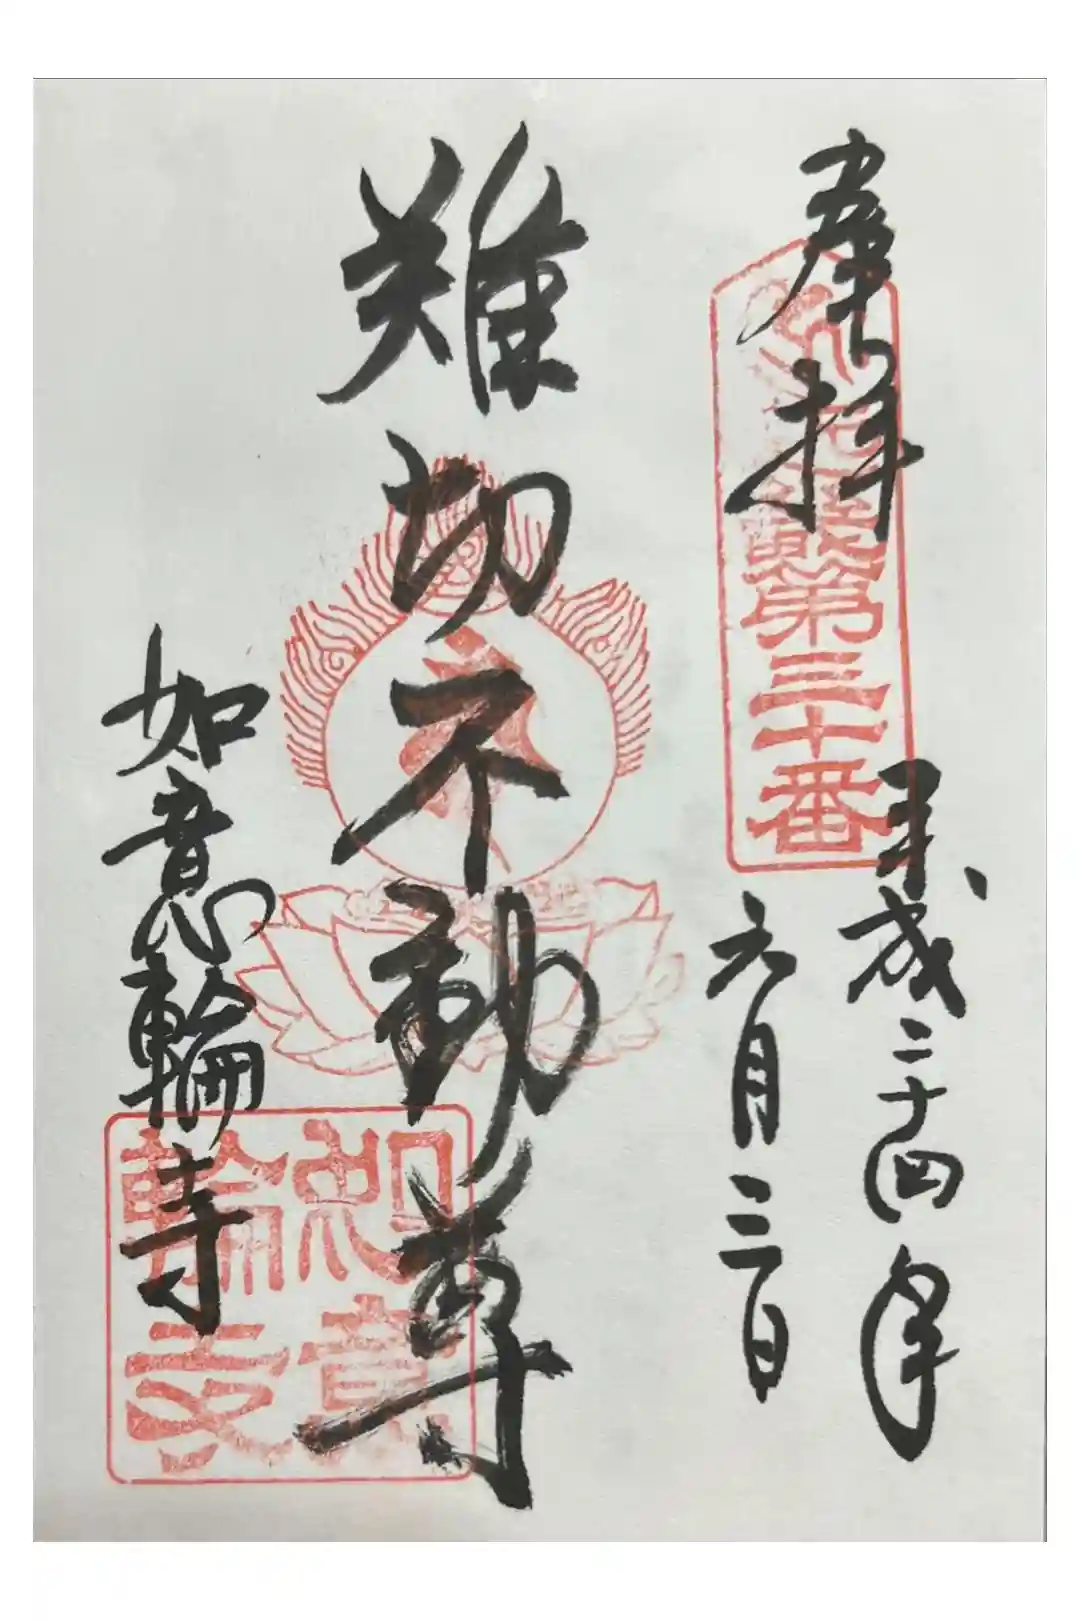 奉拝
第三十番
平成二十四年
元月三日
難切不動尊
如意輪寺